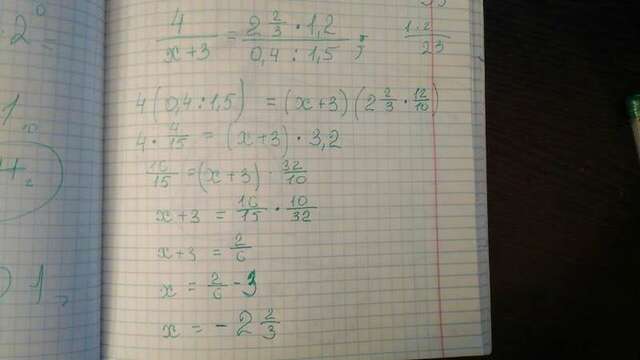 4/(x+3) = (2 2/3 · 1,2)/(0,4 : 1,5) ;
4(0,4:1,5) = (x+3)(2 2/3 · 12/10)
4 · 4/15 = (x+3) · 3,2
16/15 = (x+3) · 32/10
x+3 = 16/15 · 10/32
x+3 = 2/6
x = 2/6 - 3
x = - 2 2/3